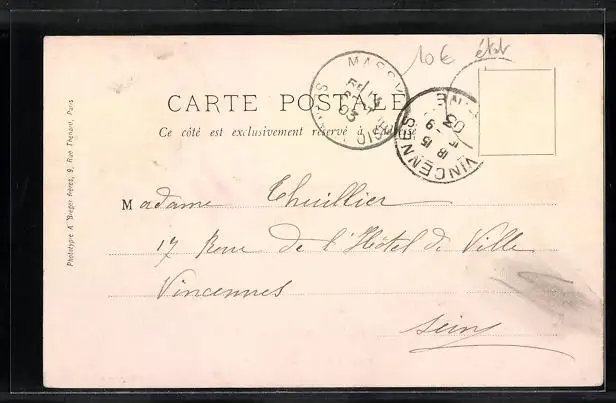 10 € état
CARTE POSTALE
Ce côté est exclusivement réservé à l'adresse
Madame Thuillier
17 Rue de l'Hôtel de Ville
Vincennes
Seine
Phototypie A. Breger frères, 9, Rue Thénard, Paris
VINCENNES
18 15
9
03
MASSY
03